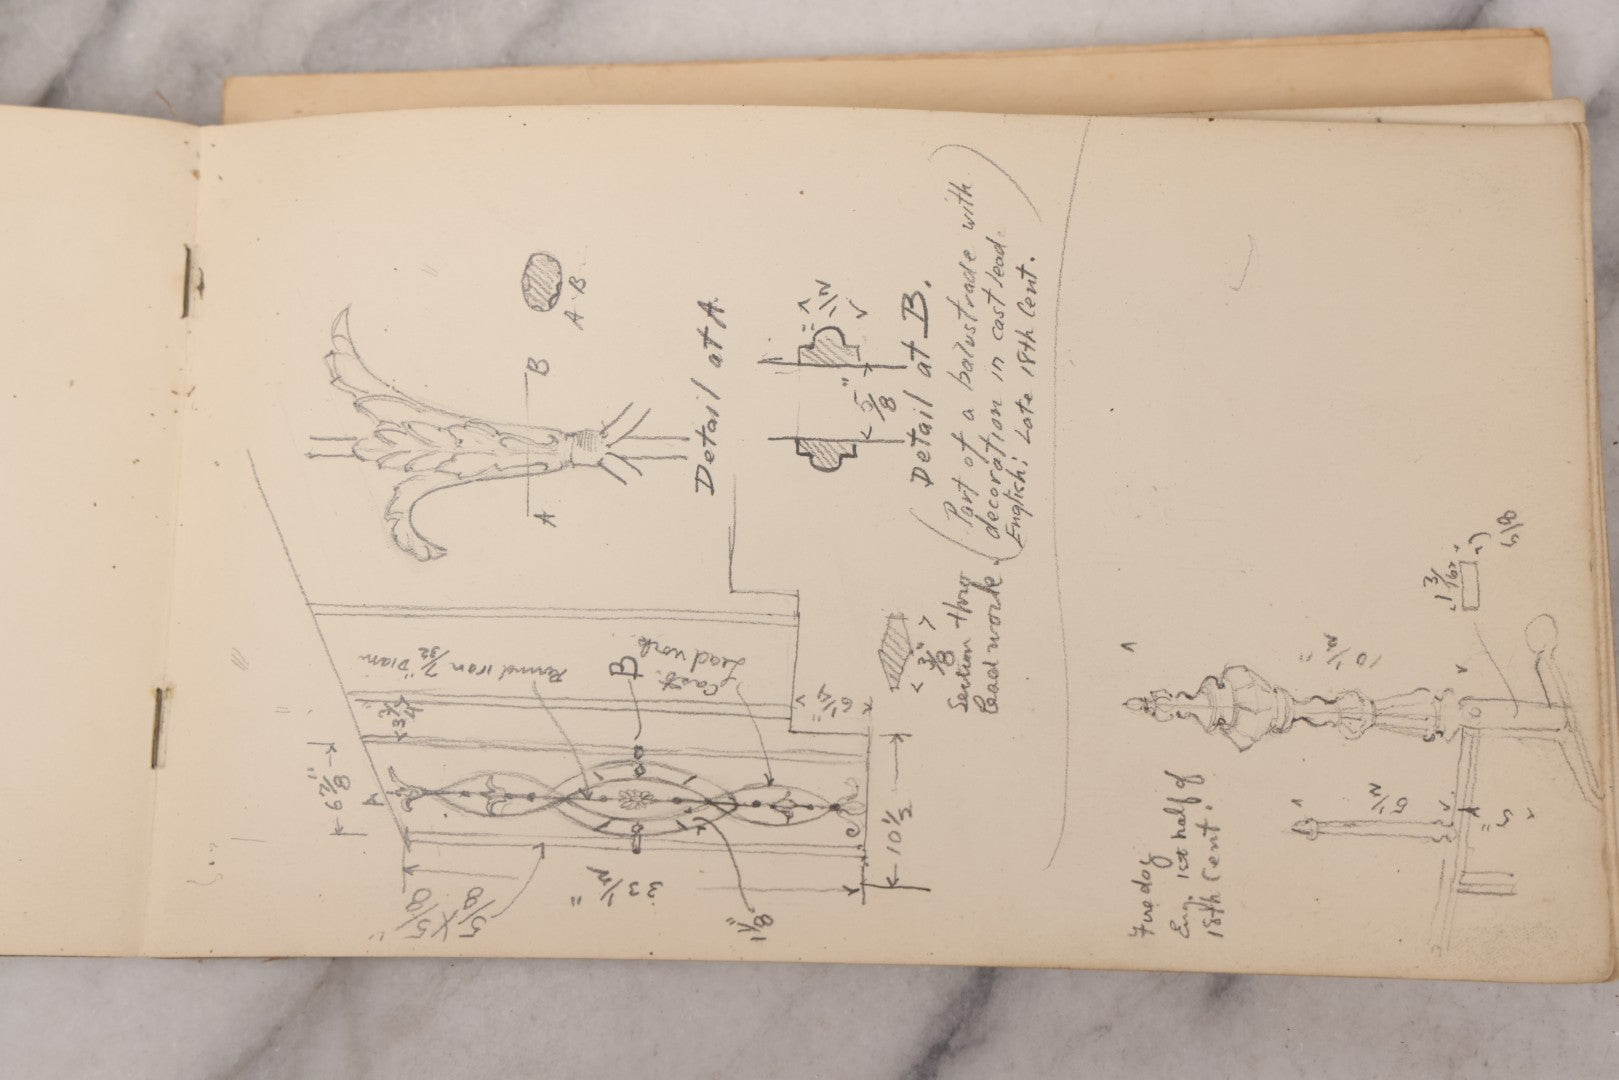 A
B
A-B
Detail at A.
← 6 7/8" →
A
3 3/4
Round iron 7/32" Diam
B
Cast
Lead work
5/8 X 5/8"
33 1/2"
1 1/8"
6 1/2"
← 10 1/2 →
< 3/8" >
Section thro
lead work.
1/2"
< 5/8"
Detail at B.
(Part of a balustrade with
decoration in cast lead.
English; Late 18th Cent.)
Fire dog
Eng. 1st half of
18th Cent.
10 1/2"
5 1/2
1 3/16"
5/8